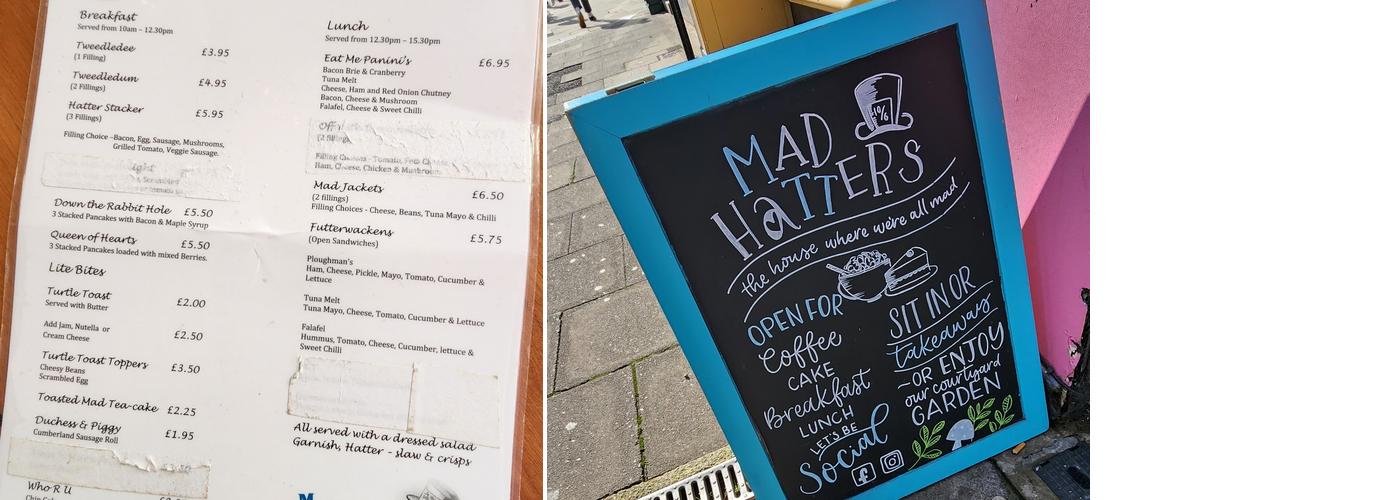 Breakfast
Served from 10am – 12.30pm
Tweedledee £3.95
(1 Filling)
Tweedledum £4.95
(2 Fillings)
Hatter Stacker £5.95
(3 Fillings)
Filling Choice –Bacon, Egg, Sausage, Mushrooms,
Grilled Tomato, Veggie Sausage.
Down the Rabbit Hole £5.50
3 Stacked Pancakes with Bacon & Maple Syrup
Queen of Hearts £5.50
3 Stacked Pancakes loaded with mixed Berries.
Lite Bites
Turtle Toast £2.00
Served with Butter
Add Jam, Nutella or £2.50
Cream Cheese
Turtle Toast Toppers £3.50
Cheesy Beans
Scrambled Egg
Toasted Mad Tea-cake £2.25
Duchess & Piggy £1.95
Cumberland Sausage Roll
Who R U
Lunch
Served from 12.30pm – 15.30pm
Eat Me Panini's £6.95
Bacon Brie & Cranberry
Tuna Melt
Cheese, Ham and Red Onion Chutney
Bacon, Cheese & Mushroom
Falafel, Cheese & Sweet Chilli
(2 fillings)
Ham, Cheese, Chicken & Mushroom
Mad Jackets £6.50
(2 fillings)
Filling Choices - Cheese, Beans, Tuna Mayo & Chilli
Futterwackens £5.75
(Open Sandwiches)
Ploughman's
Ham, Cheese, Pickle, Mayo, Tomato, Cucumber &
Lettuce
Tuna Melt
Tuna Mayo, Cheese, Tomato, Cucumber & Lettuce
Falafel
Hummus, Tomato, Cheese, Cucumber, lettuce &
Sweet Chilli
All served with a dressed salad
Garnish, Hatter - slaw & crisps
10/6
MAD
HaTTERS
the house where we're all mad
OPEN FOR
Coffee
CAKE
Breakfast
LUNCH
LET'S BE
Social
SIT IN OR
takeaways
~OR ENJOY
our courtyard
GARDEN